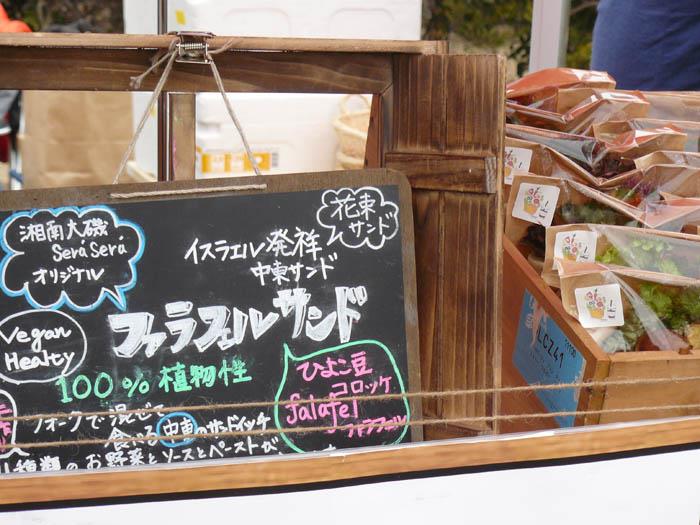 湘南大磯
Será Será
オリジナル
花束
サンド
イスラエル発祥
中東サンド
ファラフェルサンド
Vegan
Healty
100%植物性
ひよこ豆
コロッケ
falafel
フォークで混ぜて
食べる中東のサンドイッチ
種類のお野菜とソースとペーストが
LCZ41